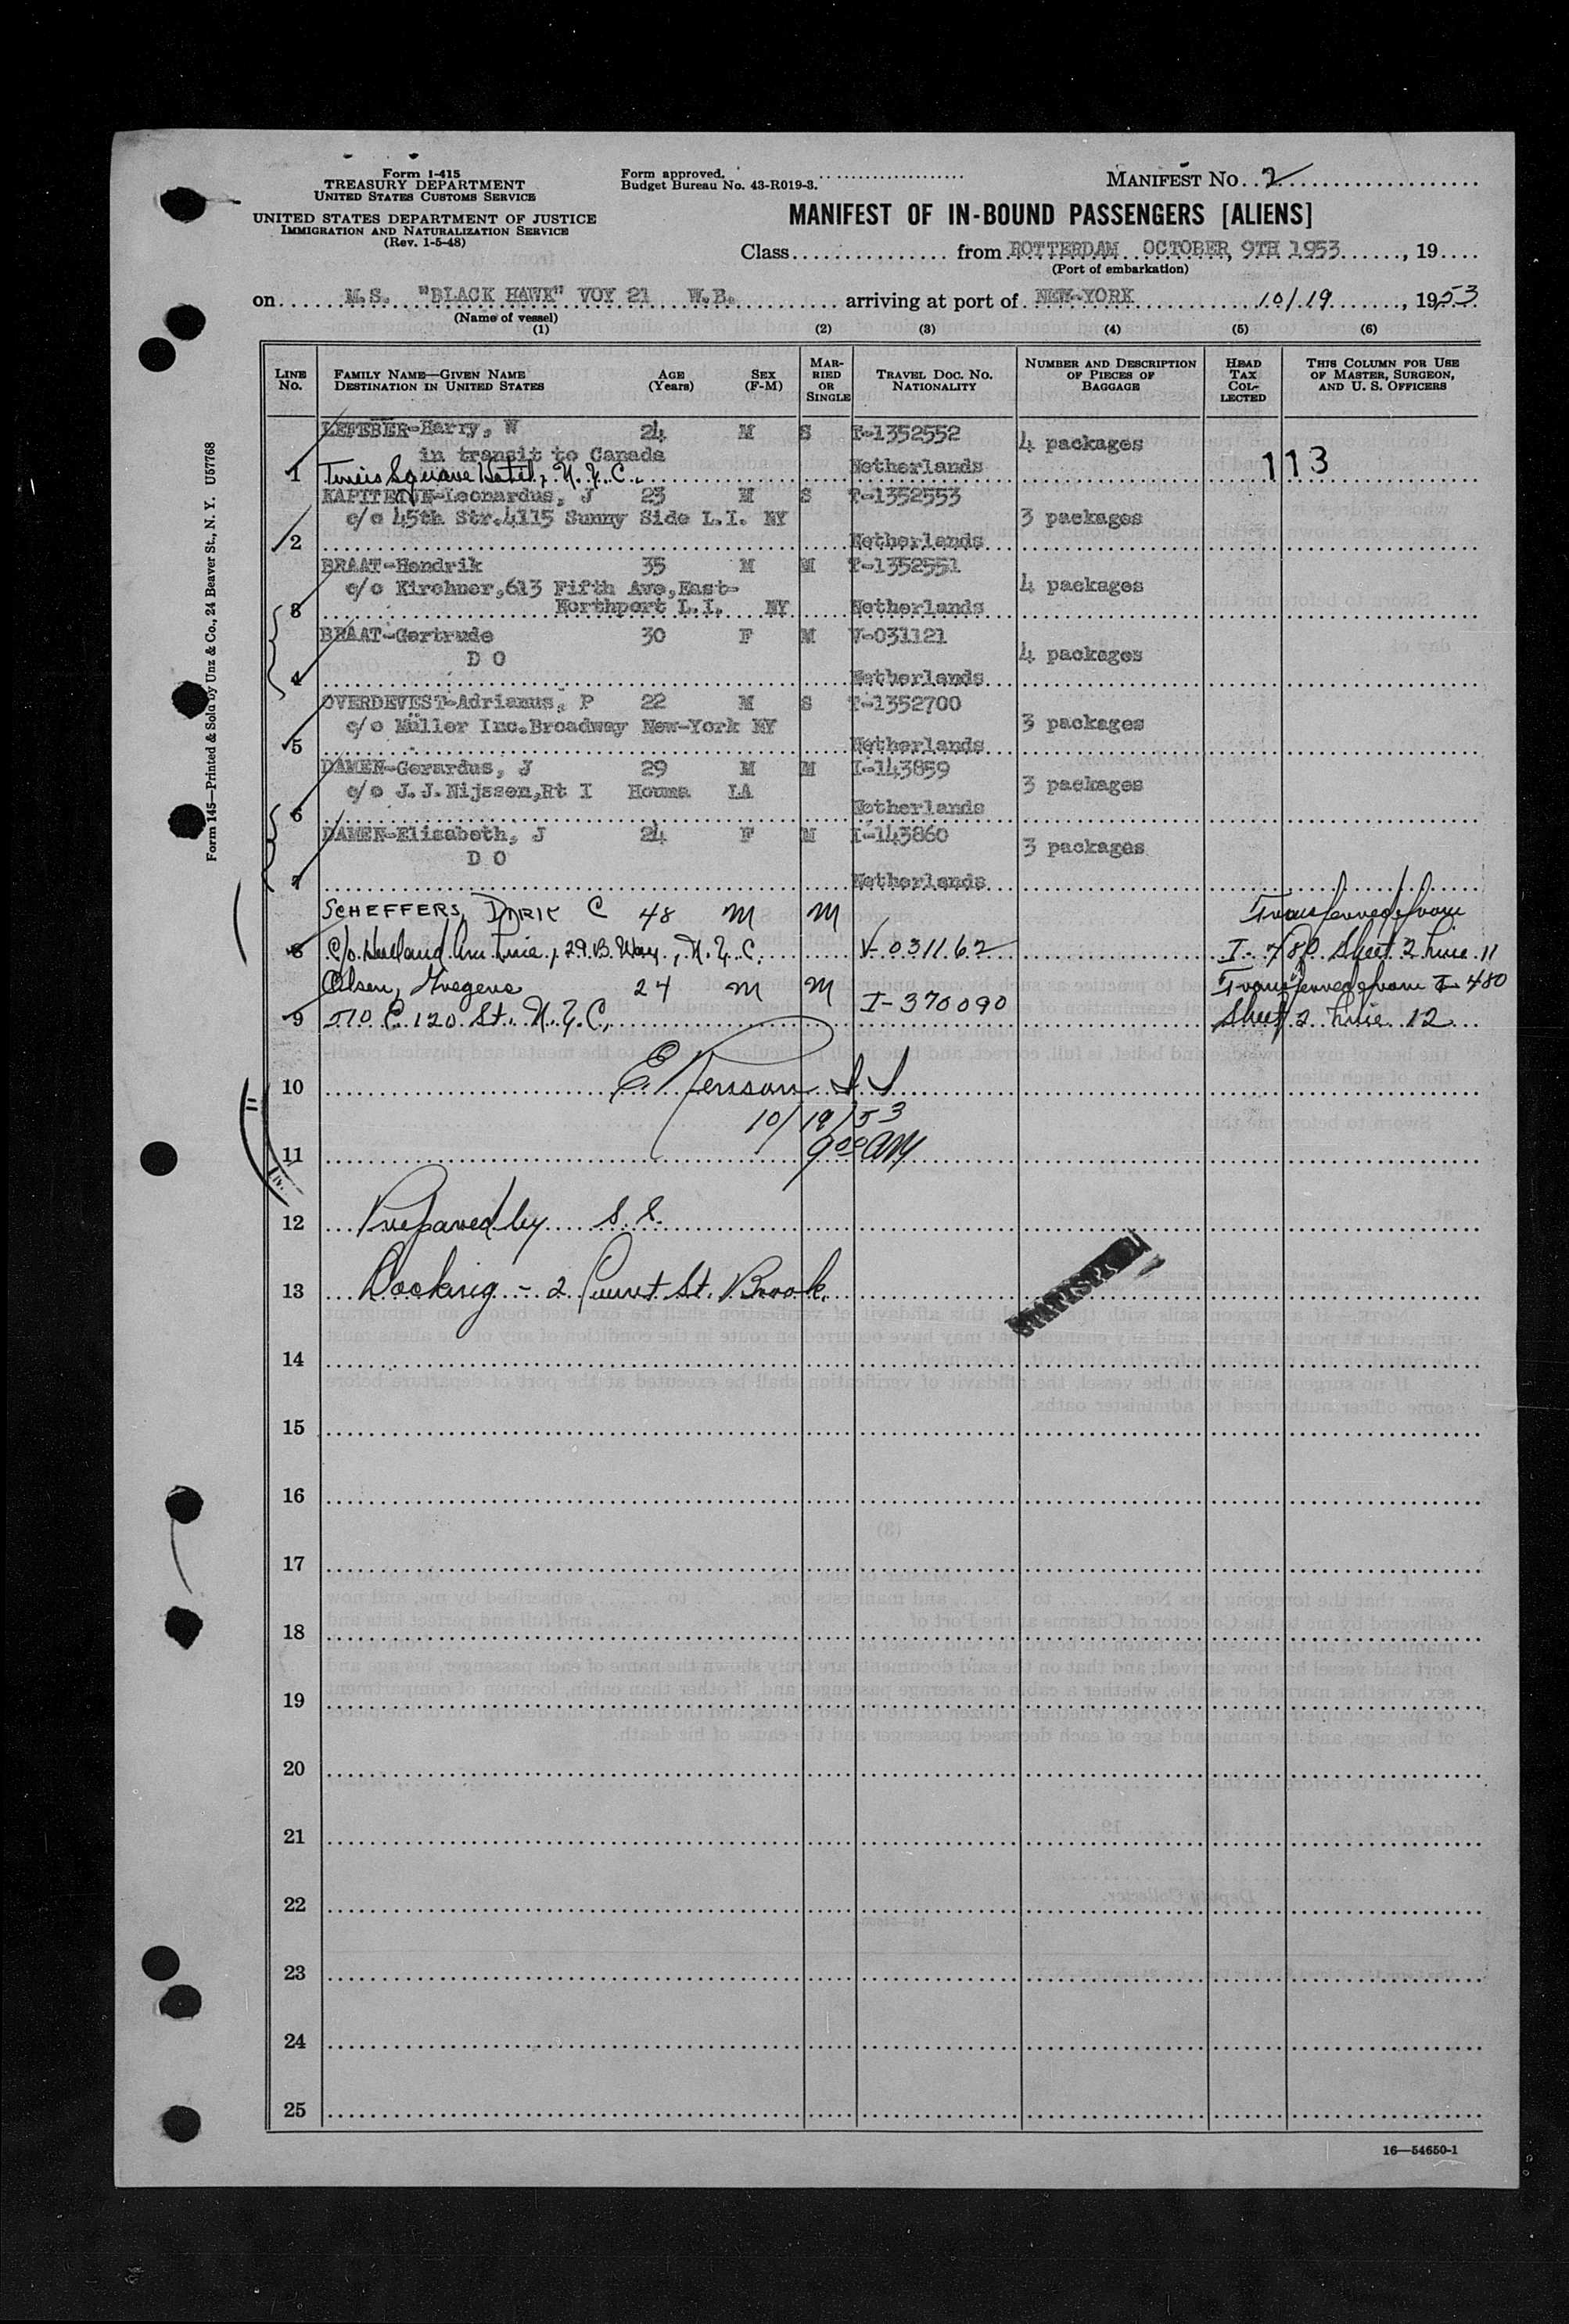 Form I-415
TREASURY DEPARTMENT
UNITED STATES CUSTOMS SERVICE
UNITED STATES DEPARTMENT OF JUSTICE
IMMIGRATION AND NATURALIZATION SERVICE
(Rev. 1-5-48)
Form approved.
Budget Bureau No. 43-R019-3.
MANIFEST NO. 2
MANIFEST OF IN-BOUND PASSENGERS [ALIENS]
Class from ROTTERDAM OCTOBER, 9TH 1953, 19
(Port of embarkation)
on M.S. "BLACK HAWK" VOY 21 W.B. arriving at port of NEW-YORK 10/19, 1953
(Name of vessel)
(1) (2) (3) (4) (5) (6)
LINE NO. FAMILY NAME—GIVEN NAME DESTINATION IN UNITED STATES AGE (Years) SEX (F-M) MARRIED OR SINGLE TRAVEL DOC. NO. NATIONALITY NUMBER AND DESCRIPTION OF PIECES OF BAGGAGE HEAD TAX COLLECTED THIS COLUMN FOR USE OF MASTER, SURGEON, AND U. S. OFFICERS
LEFEBER-Harry, W 24 M S T-1352552 4 packages
in transit to Canada
1 Times Square Hotel, N.Y.C. Netherlands 113
KAPITEIJN-Leonardus, J 23 M S T-1352553
c/o 45th Str. 4115 Sunny Side L.I. NY 3 packages
2 Netherlands
BRAAT-Hendrik 35 M M T-1352551
c/o Kirchner, 613 Fifth Ave, East- 4 packages
3 Northport L.I. NY Netherlands
BRAAT-Gertrude 30 F M V-031121
D O 4 packages
4 Netherlands
OVERDEVEST-Adrianus, P 22 M S T-1352700
c/o Müller Inc. Broadway New-York NY 3 packages
5 Netherlands
DAMEN-Gerardus, J 29 M M I-143859
c/o J.J. Nijssen, Rt I Houma LA 3 packages
6 Netherlands
DAMEN-Elisabeth, J 24 F M I-143860
D O 3 packages
7 Netherlands
SCHEFFERS, DIRK C 48 M M Transferred from
8 c/o Holland Am Line, 29 B. Way, N.Y.C. V-031162 I-480 Sheet 2 Line 11
Olsen, Gregers 24 M M I-370090 Transferred from I-480
9 510 E. 120 St. N.Y.C. Sheet 2 Line 12
10
10/19/53
11 9:00 AM
12 Prepared by S.S.
13 Docking - 2 St. Brook.
14
15
16
17
18
19
20
21
22
23
24
25
16—54650-1
Form 145—Printed & Sold by Unz & Co., 24 Beaver St., N. Y. U57768